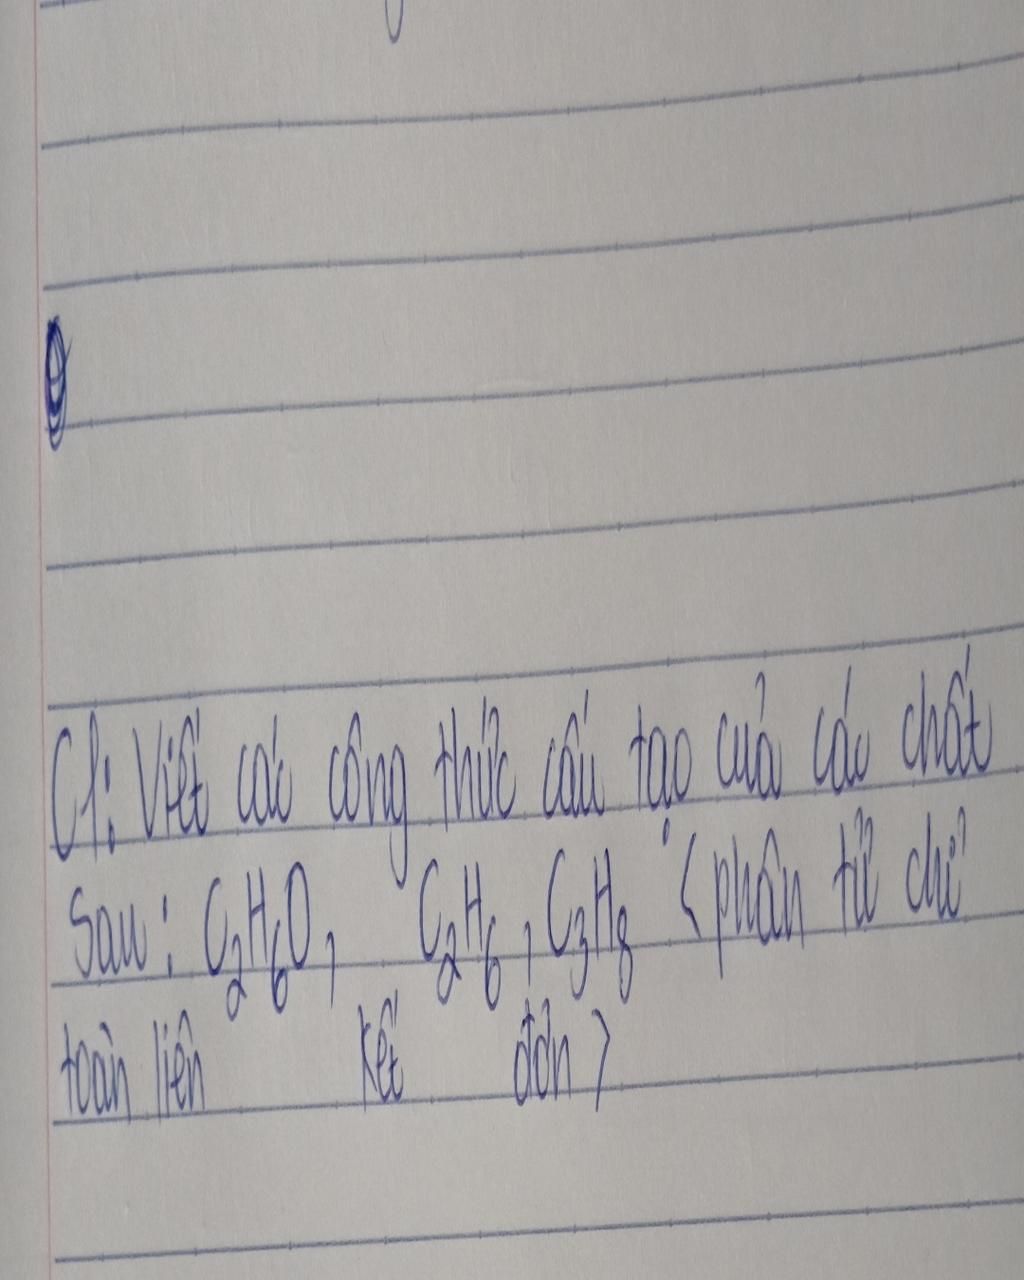 C1: Viết các công thức cấu tạo của các chất
Sau: C₂H₆O, C₂H₆, C₃H₈ < phân tử chỉ
toàn liên kết đơn >